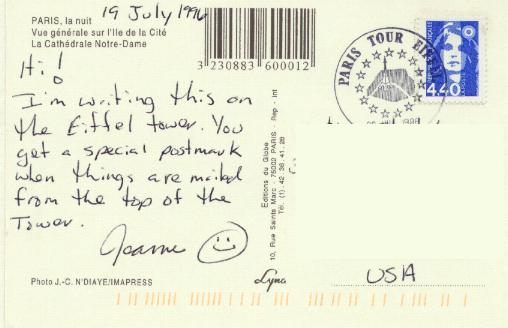 19 July 1996
PARIS, la nuit
Vue générale sur l'Ile de la Cité
La Cathédrale Notre-Dame
3 230883 600012
PARIS TOUR EIFFEL
4,40
Hi!
I'm writing this on
the Eiffel tower. You
get a special postmark
when things are mailed
from the top of the
Tower.
Joanne
Photo J.-C. N'DIAYE/IMAPRESS
Editions du Globe
10, Rue Sainte Marc - 75002 PARIS - Rep - Int
Tél. (1) 42.36.41.28
Lyna
USA